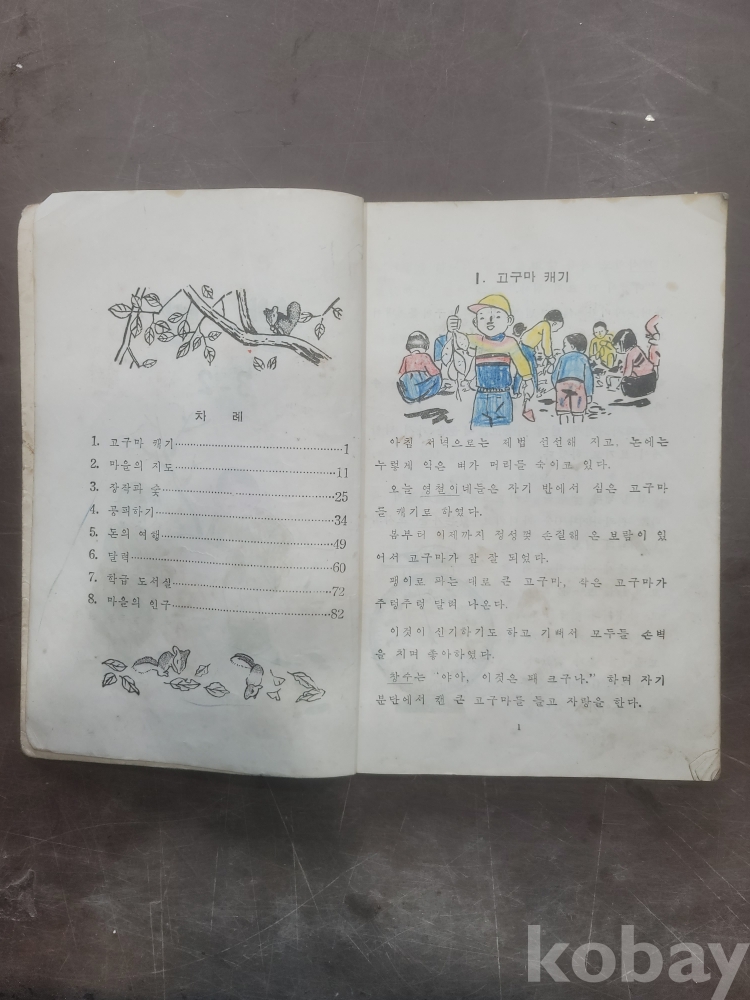 차 례
1. 고구마 캐기 1
2. 마을의 지도 11
3. 장작과 숯 25
4. 콩쾨하기 34
5. 돈의 여행 49
6. 달력 60
7. 학급 도서실 72
8. 마을의 인구 82
1. 고구마 캐기
아침 저녁으로는 제법 선선해 지고, 논에는
누렇게 익은 벼가 머리를 숙이고 있다.
오늘 영철이네들은 자기 반에서 심은 고구마
를 캐기로 하였다.
봄부터 이제까지 정성껏 손질해 온 보람이 있
어서 고구마가 참 잘 되었다.
괭이로 파는 대로 큰 고구마, 작은 고구마가
주렁주렁 달려 나온다.
이것이 신기하기도 하고 기뻐서 모두들 손벽
을 치며 좋아하였다.
창수는 "야아, 이것은 꽤 크구나." 하며 자기
분단에서 캔 큰 고구마를 들고 자랑을 한다.
1
kobay